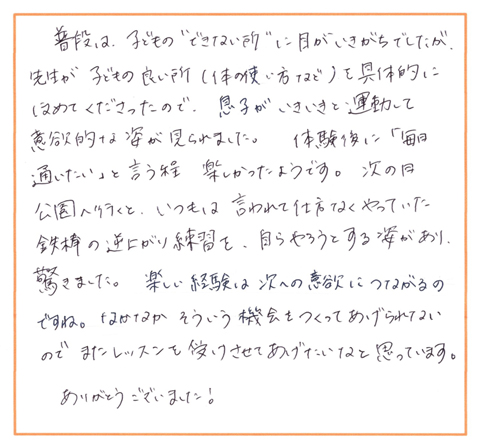 普段は、子どもの"できない所"に目がいきがちでしたが、
先生が子どもの良い所(体の使い方など)を具体的に
ほめてくださったので、息子がいきいきと運動して
意欲的な姿が見られました。 体験後に「毎日
通いたい」と言う程 楽しかったようです。 次の日
公園へ行くと、いつもは言われて仕方なくやっていた
鉄棒の逆上がり練習を、自らやろうとする姿があり、
驚きました。 楽しい経験は次への意欲につながるの
ですね。なかなかそういう機会をつくってあげられない
のでまたレッスンを受けさせてあげたいなと思っています。
ありがとうございました!